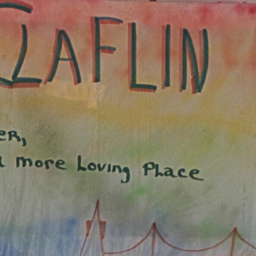 CLAFLIN
ER,
more Loving Place